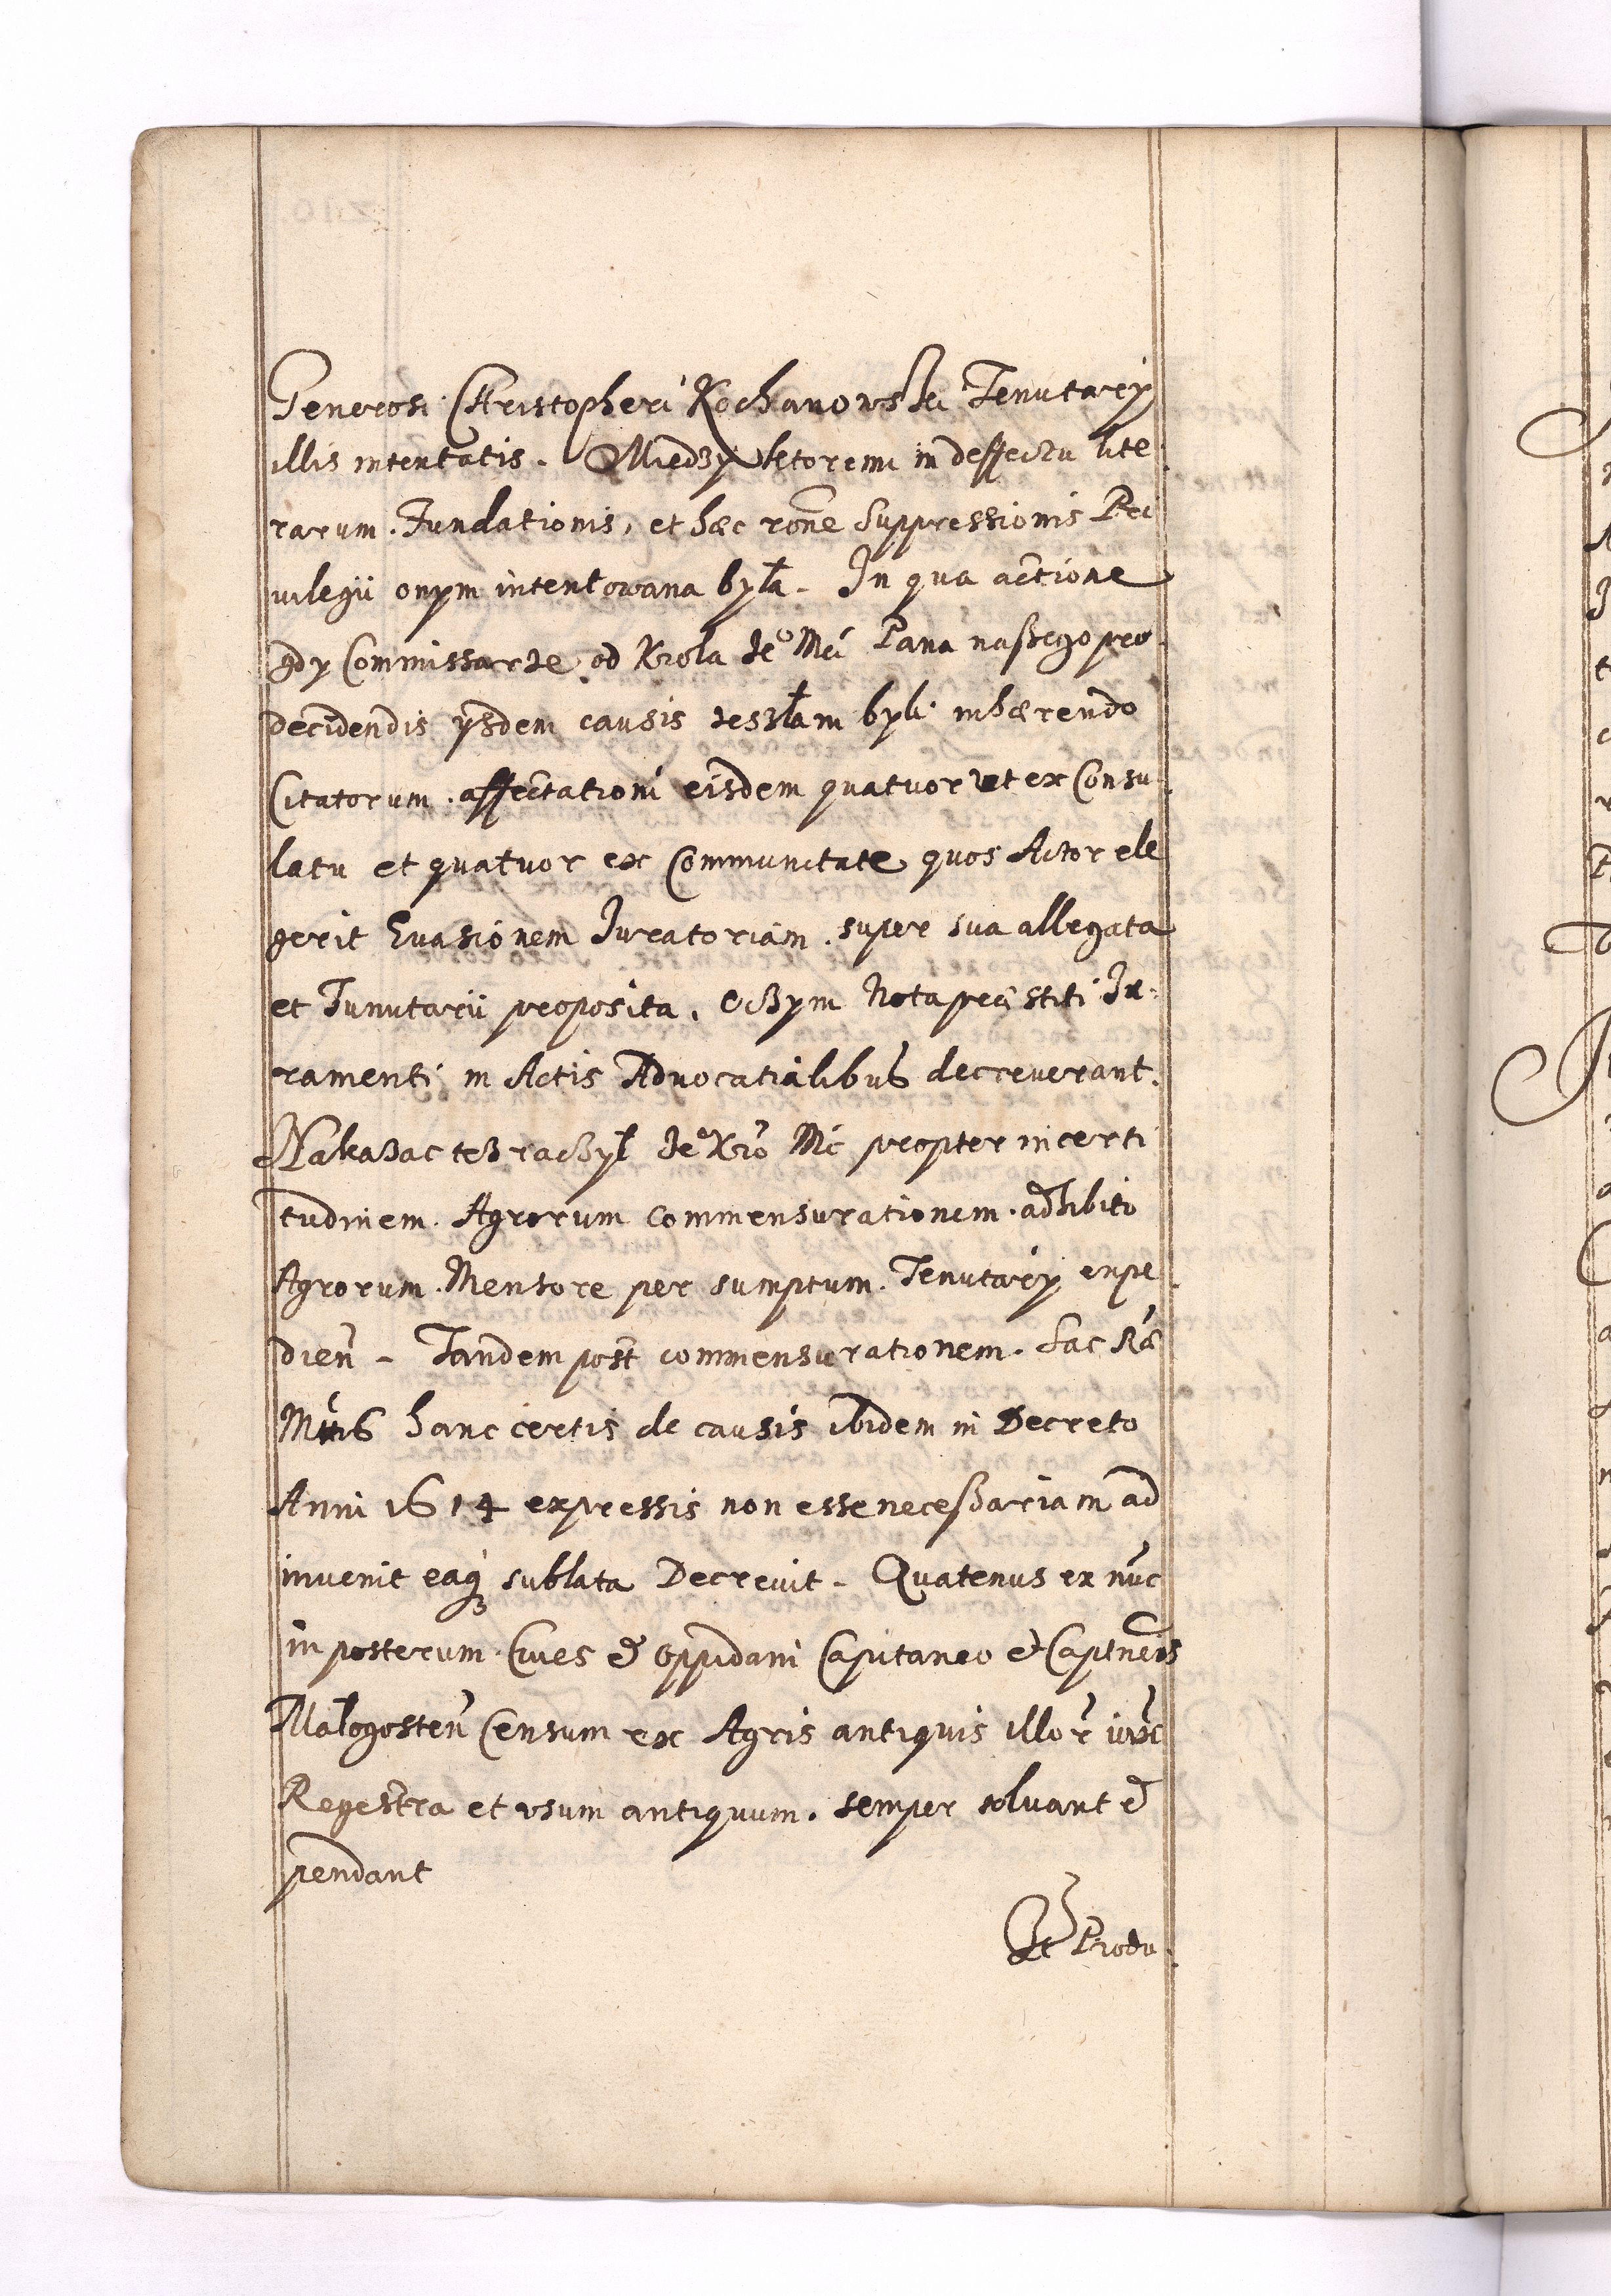 Generosi Christopheri Kochanowski Tenutarÿ
illis intentatis. Miedzy ktoremi in deffectu lite
rarum. Fundationis, et hæc rone Suppressionis Pri
uilegii onym intentowana była. In qua actione
gdy Commissarze od Krola Je° Mci Pana naßego pro
decidendis ÿsdem causis zesłani byli. inhærendo
Citatorum. affectationi eisdem quatuor ut ex Consu
latu et quatuor ex Communitate quos Actor ele
gerit Evasionem Juratoriam. super sua allegata
et Tunutarii proposita. Oczym Nota præstiti Ju
ramenti in Actis Advocatialibus decreverant.
Nakazac też raczył Je° Kro Mc propter incerti
tudinem. Agrorum commensurationem. adhibito
Agrorum. Mensore per sumptum. Tenutarÿ expe
dien – Tandem post commensurationem. Sac Ræ
Mttis hanc certis de causis ibidem in Decreto
Anni 1614 expressis non esse neceßariam ad
invenit eaq₃ sublata Decrevit – Quatenus ex nuc
in posterum. Cives & oppidani Capitaneo & Captneis
Małogosten Censum ex Agris antiquis illor iuxc
Regestra et usum antiquum. semper solvant &
pendant
Et Produ